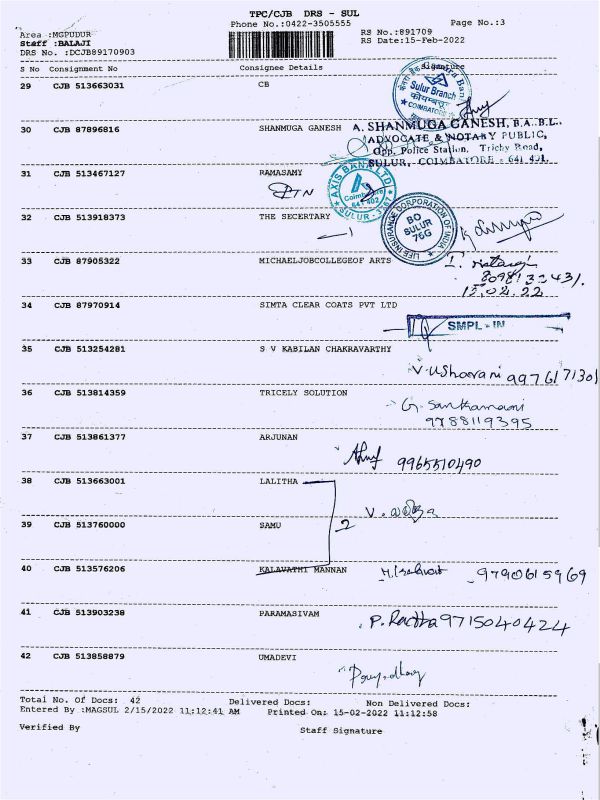 TPC/CJB DRS - SUL
Phone No.:0422-3505555 Page No.:3
Area :MGPUDUR RS No.:891709
Staff :BALAJI RS Date:15-Feb-2022
DRS No. :DCJB89170903
S No Consignment No Consignee Details Signature
29 CJB 513663031 CB
Sulur Branch
30 CJB 87896816 SHANMUGA GANESH A. SHANMUGA GANESH, B.A.,B.L.,
ADVOCATE & NOTARY PUBLIC,
Opp. Police Station, Trichy Road,
SULUR, COIMBATORE - 641 401.
31 CJB 513467127 RAMASAMY
AXIS BANK LTD
Coimbatore
641 402
SULUR
32 CJB 513918373 THE SECERTARY
LIFE INSURANCE CORPORATION OF INDIA
BO
SULUR
76G
33 CJB 87905322 MICHAELJOBCOLLEGEOF ARTS
15.02.22
34 CJB 87970914 SIMTA CLEAR COATS PVT LTD
SMPL - IN
35 CJB 513254281 S V KABILAN CHAKRAVARTHY
V. Usharani 9976171301
36 CJB 513814359 TRICELY SOLUTION
9788119395
37 CJB 513861377 ARJUNAN
9965510490
38 CJB 513663001 LALITHA
39 CJB 513760000 SAMU 2
40 CJB 513576206 KALAVATHI MANNAN 9790615969
41 CJB 513903238 PARAMASIVAM
P. Radha 9715040424
42 CJB 513858879 UMADEVI
Total No. Of Docs: 42 Delivered Docs: Non Delivered Docs:
Entered By :MAGSUL 2/15/2022 11:12:41 AM Printed On: 15-02-2022 11:12:58
Verified By Staff Signature